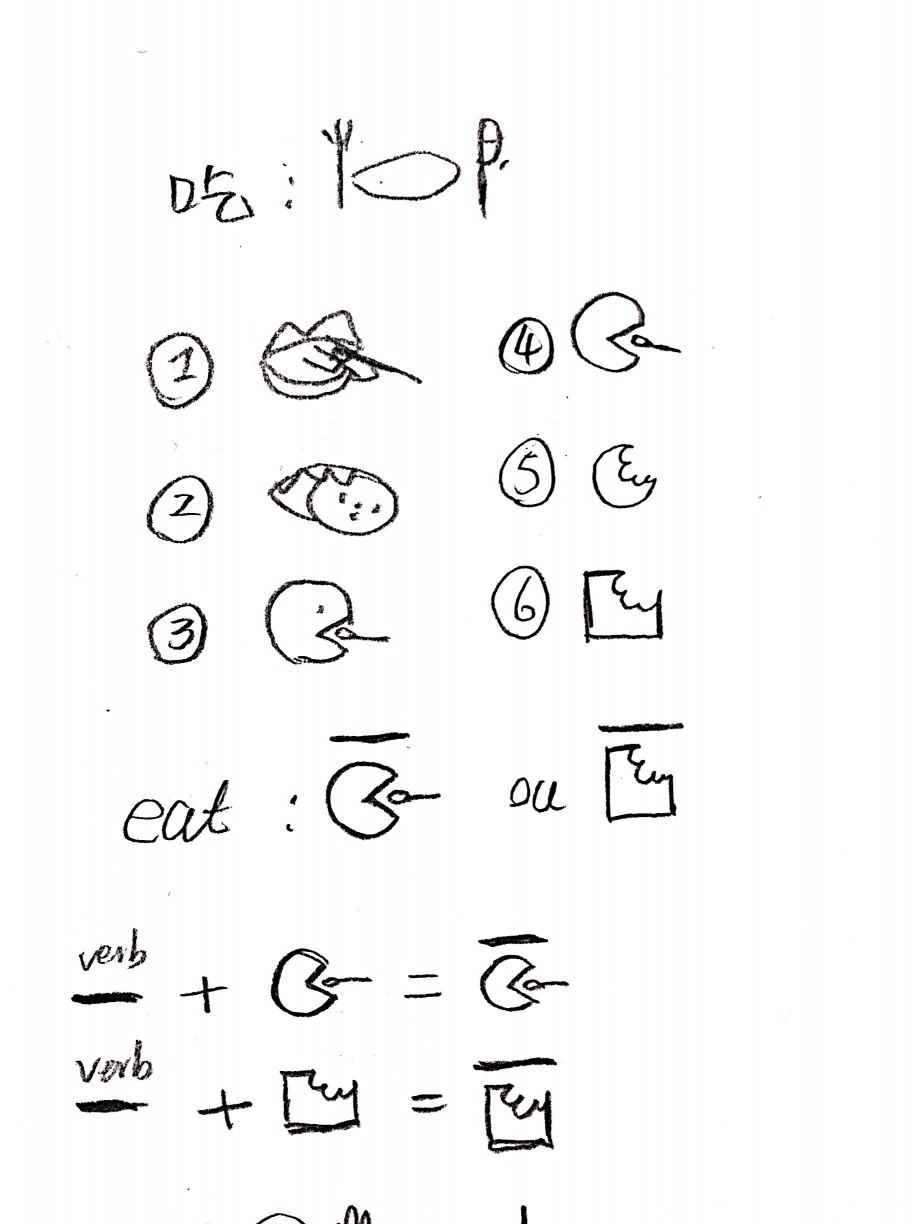 吃 :
① ④
② ⑤
③ ⑥
eat : ou
verb
+ =
verb
+ =